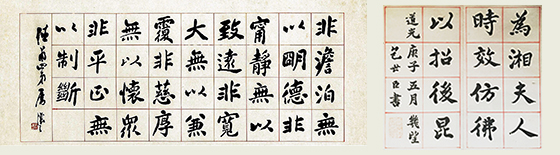 為湘夫人
時效仿彿
以招後昆
道光庚子五月幾望
包世臣書
非澹泊無
以明德非
甯靜無以
致遠非寬
大無以兼
覆非慈厚
無以懷眾
非平正無
以制斷